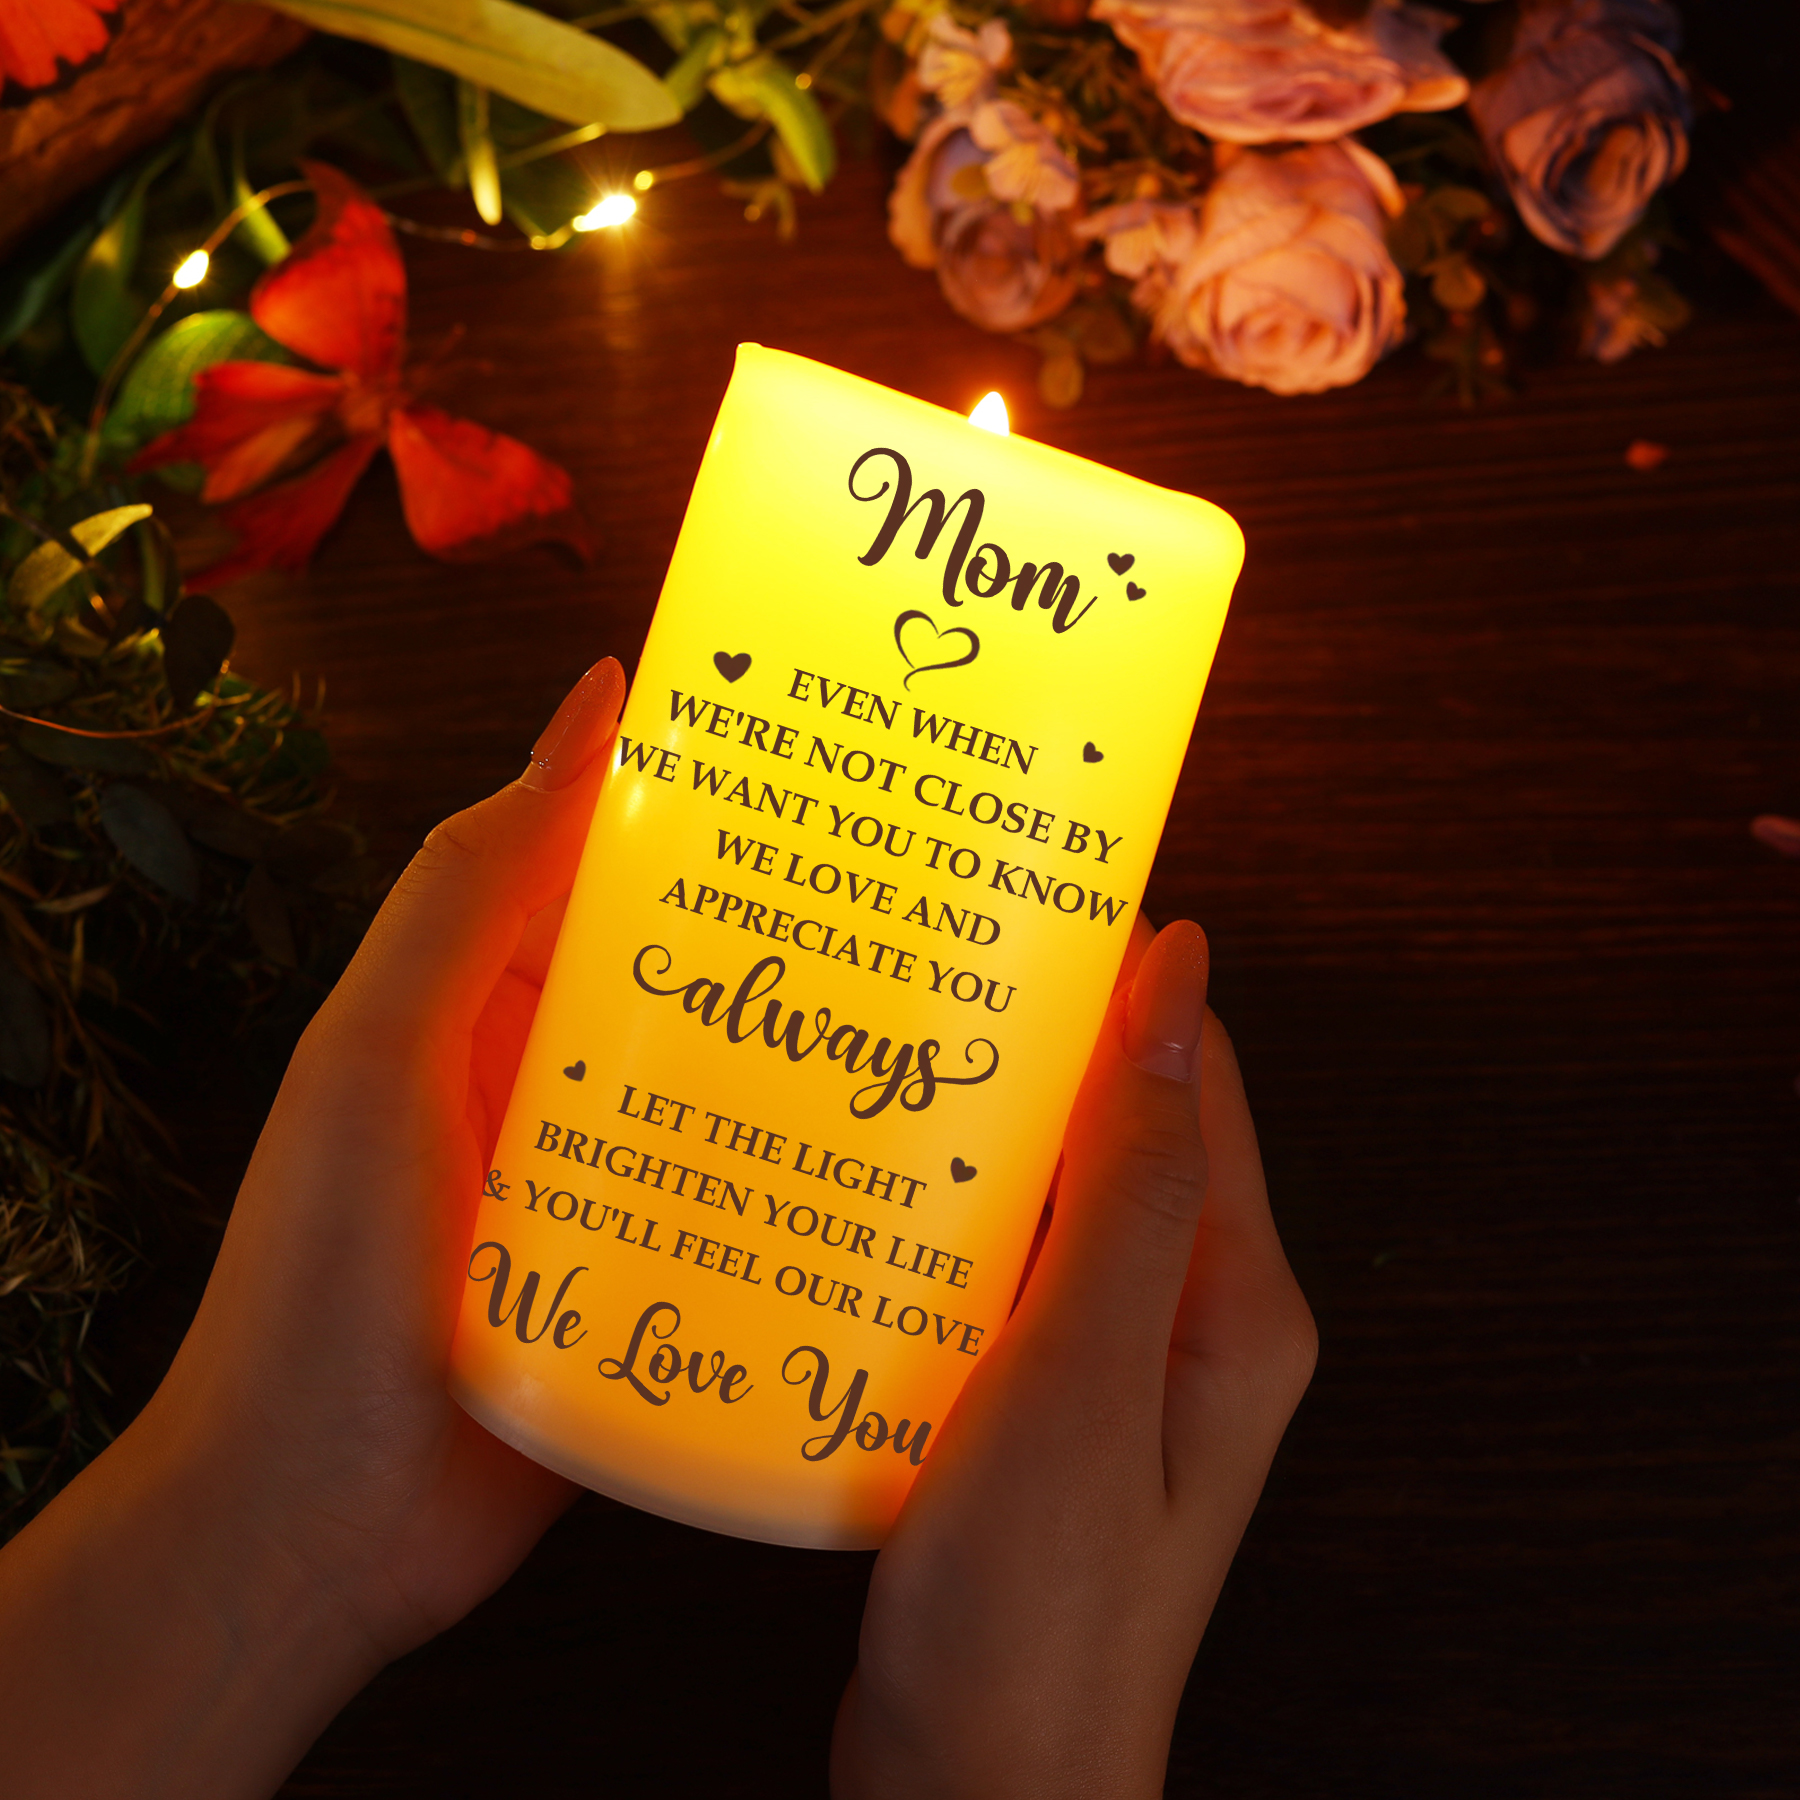 Mom
EVEN WHEN
WE'RE NOT CLOSE BY
WE WANT YOU TO KNOW
WE LOVE AND
APPRECIATE YOU
always
LET THE LIGHT
BRIGHTEN YOUR LIFE
& YOU'LL FEEL OUR LOVE
We Love You